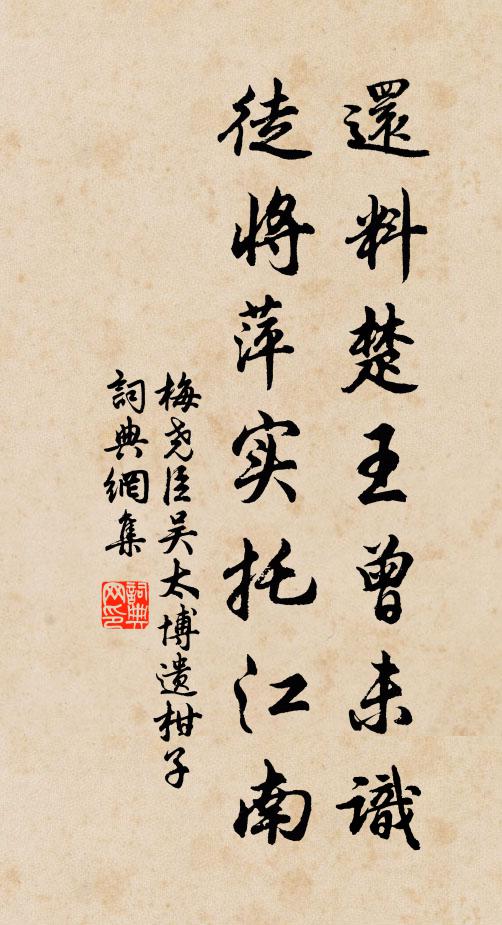 還料楚王曾未識
徒將萍实托江南
梅尧臣吴太博遗柑子
詞典網集
詞典网印